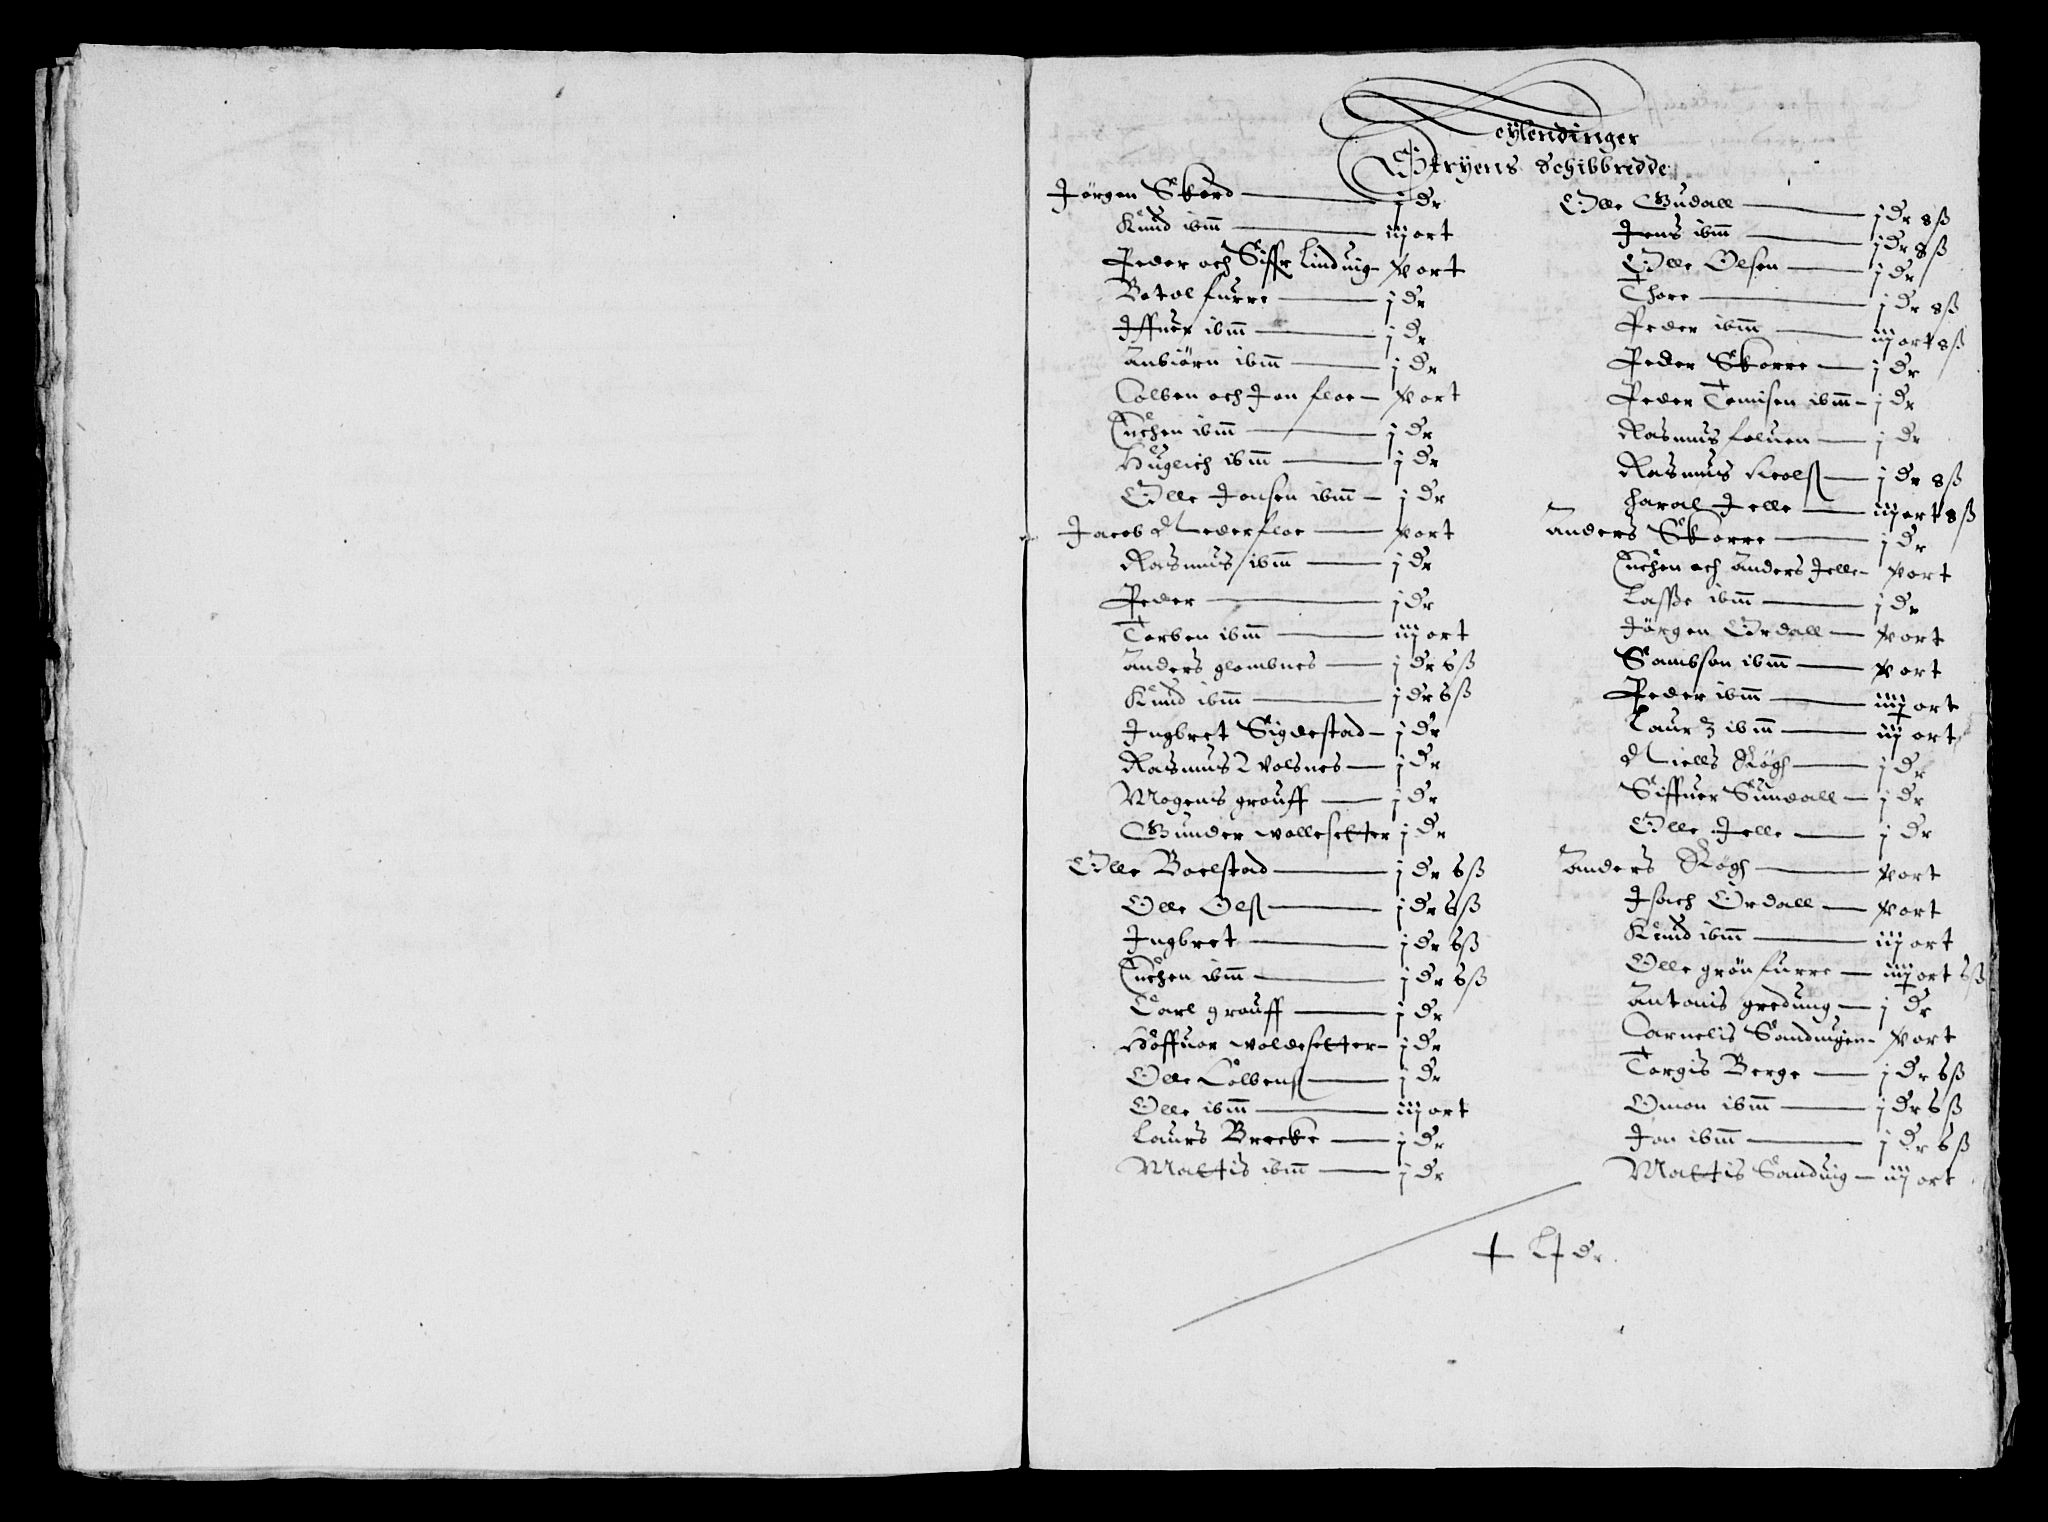 Leÿlendinger
Strÿens Schibbredde
Jørgen Skørd — j dr
Knud ibm — iij ort
Peder och Siffr Linduig — v ort
Botol furre — j dr
Iffuer ibm — j dr
Anbiørn ibm — j dr
Colben och Jon floe — v ort
Cuchen ibm — j dr
Huglich ibm — j dr
Olle Jonsen ibm — j dr
Jacob Nederfloe — v ort
Rasmus ibm — j dr
Peder — j dr
Torben ibm — iij ort
Anders glombnes — j dr 6 ß
Knud ibm — j dr 6 ß
Ingbret Sigdestad — j dr
Rasmus Volsnes — j dr
Mogens grouff — j dr
Gunder wollesetter j dr
Olle Boelstad — j dr 6 ß
Olle Olß — j dr 6 ß
Ingbret — j dr 6 ß
Cuchen ibm — j dr 6 ß
Carl grouff — j dr
Hoffuor woldesetter — j dr
Olle Colbenß — j dr
Olle ibm — iij ort
Laurs Brecke — j dr
Mattis ibm — j dr
Olle Gudall — j dr 8 ß
Jens ibm — j dr 8 ß
Olle Olsen — j dr
Thore — j dr 8 ß
Peder ibm — iij ort 8 ß
Peder Skorre — j dr
Peder Tomisen ibm — j dr
Rasmus foluen — j dr
Rasmus — j dr 8 ß
Haral Jelle — iij ort 8 ß
Anders Skorre — j dr
Cuchen och Anders Jelle — v ort
Lasse ibm — j dr
Jørgen Ordall — v ort
Sambson ibm — v ort
Peder ibm — iiij ort
Laurz ibm — iij ort
Niells Køgh — j dr
Siffuer Sundall — j dr
Olle Jelle — j dr
Anders Køgh — v ort
Isach Ordall — v ort
Knud ibm — iij ort
Olle grönfurre — iiij ort 6 ß
Antonis gredung — j dr
Cornelis Sanduigen — v ort
Torgis Berge — j dr 6 ß
Omon ibm — j dr 6 ß
Jon ibm — j dr 6 ß
Mattis Sanduig — iij ort
dr